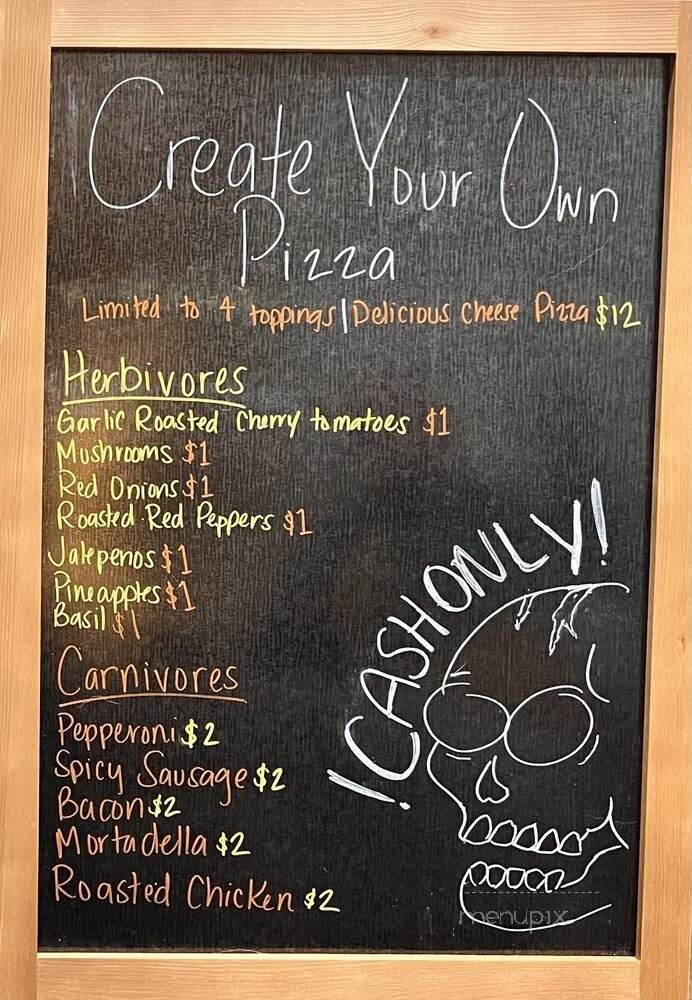 Create Your Own
Pizza
Limited to 4 toppings | Delicious Cheese Pizza $12
Herbivores
Garlic Roasted Cherry tomatoes $1
Mushrooms $1
Red Onions $1
Roasted Red Peppers $1
Jalepenos $1
Pineapples $1
Basil $1
Carnivores
Pepperoni $2
Spicy Sausage $2
Bacon $2
Mortadella $2
Roasted Chicken $2
!CASH ONLY!
menupix